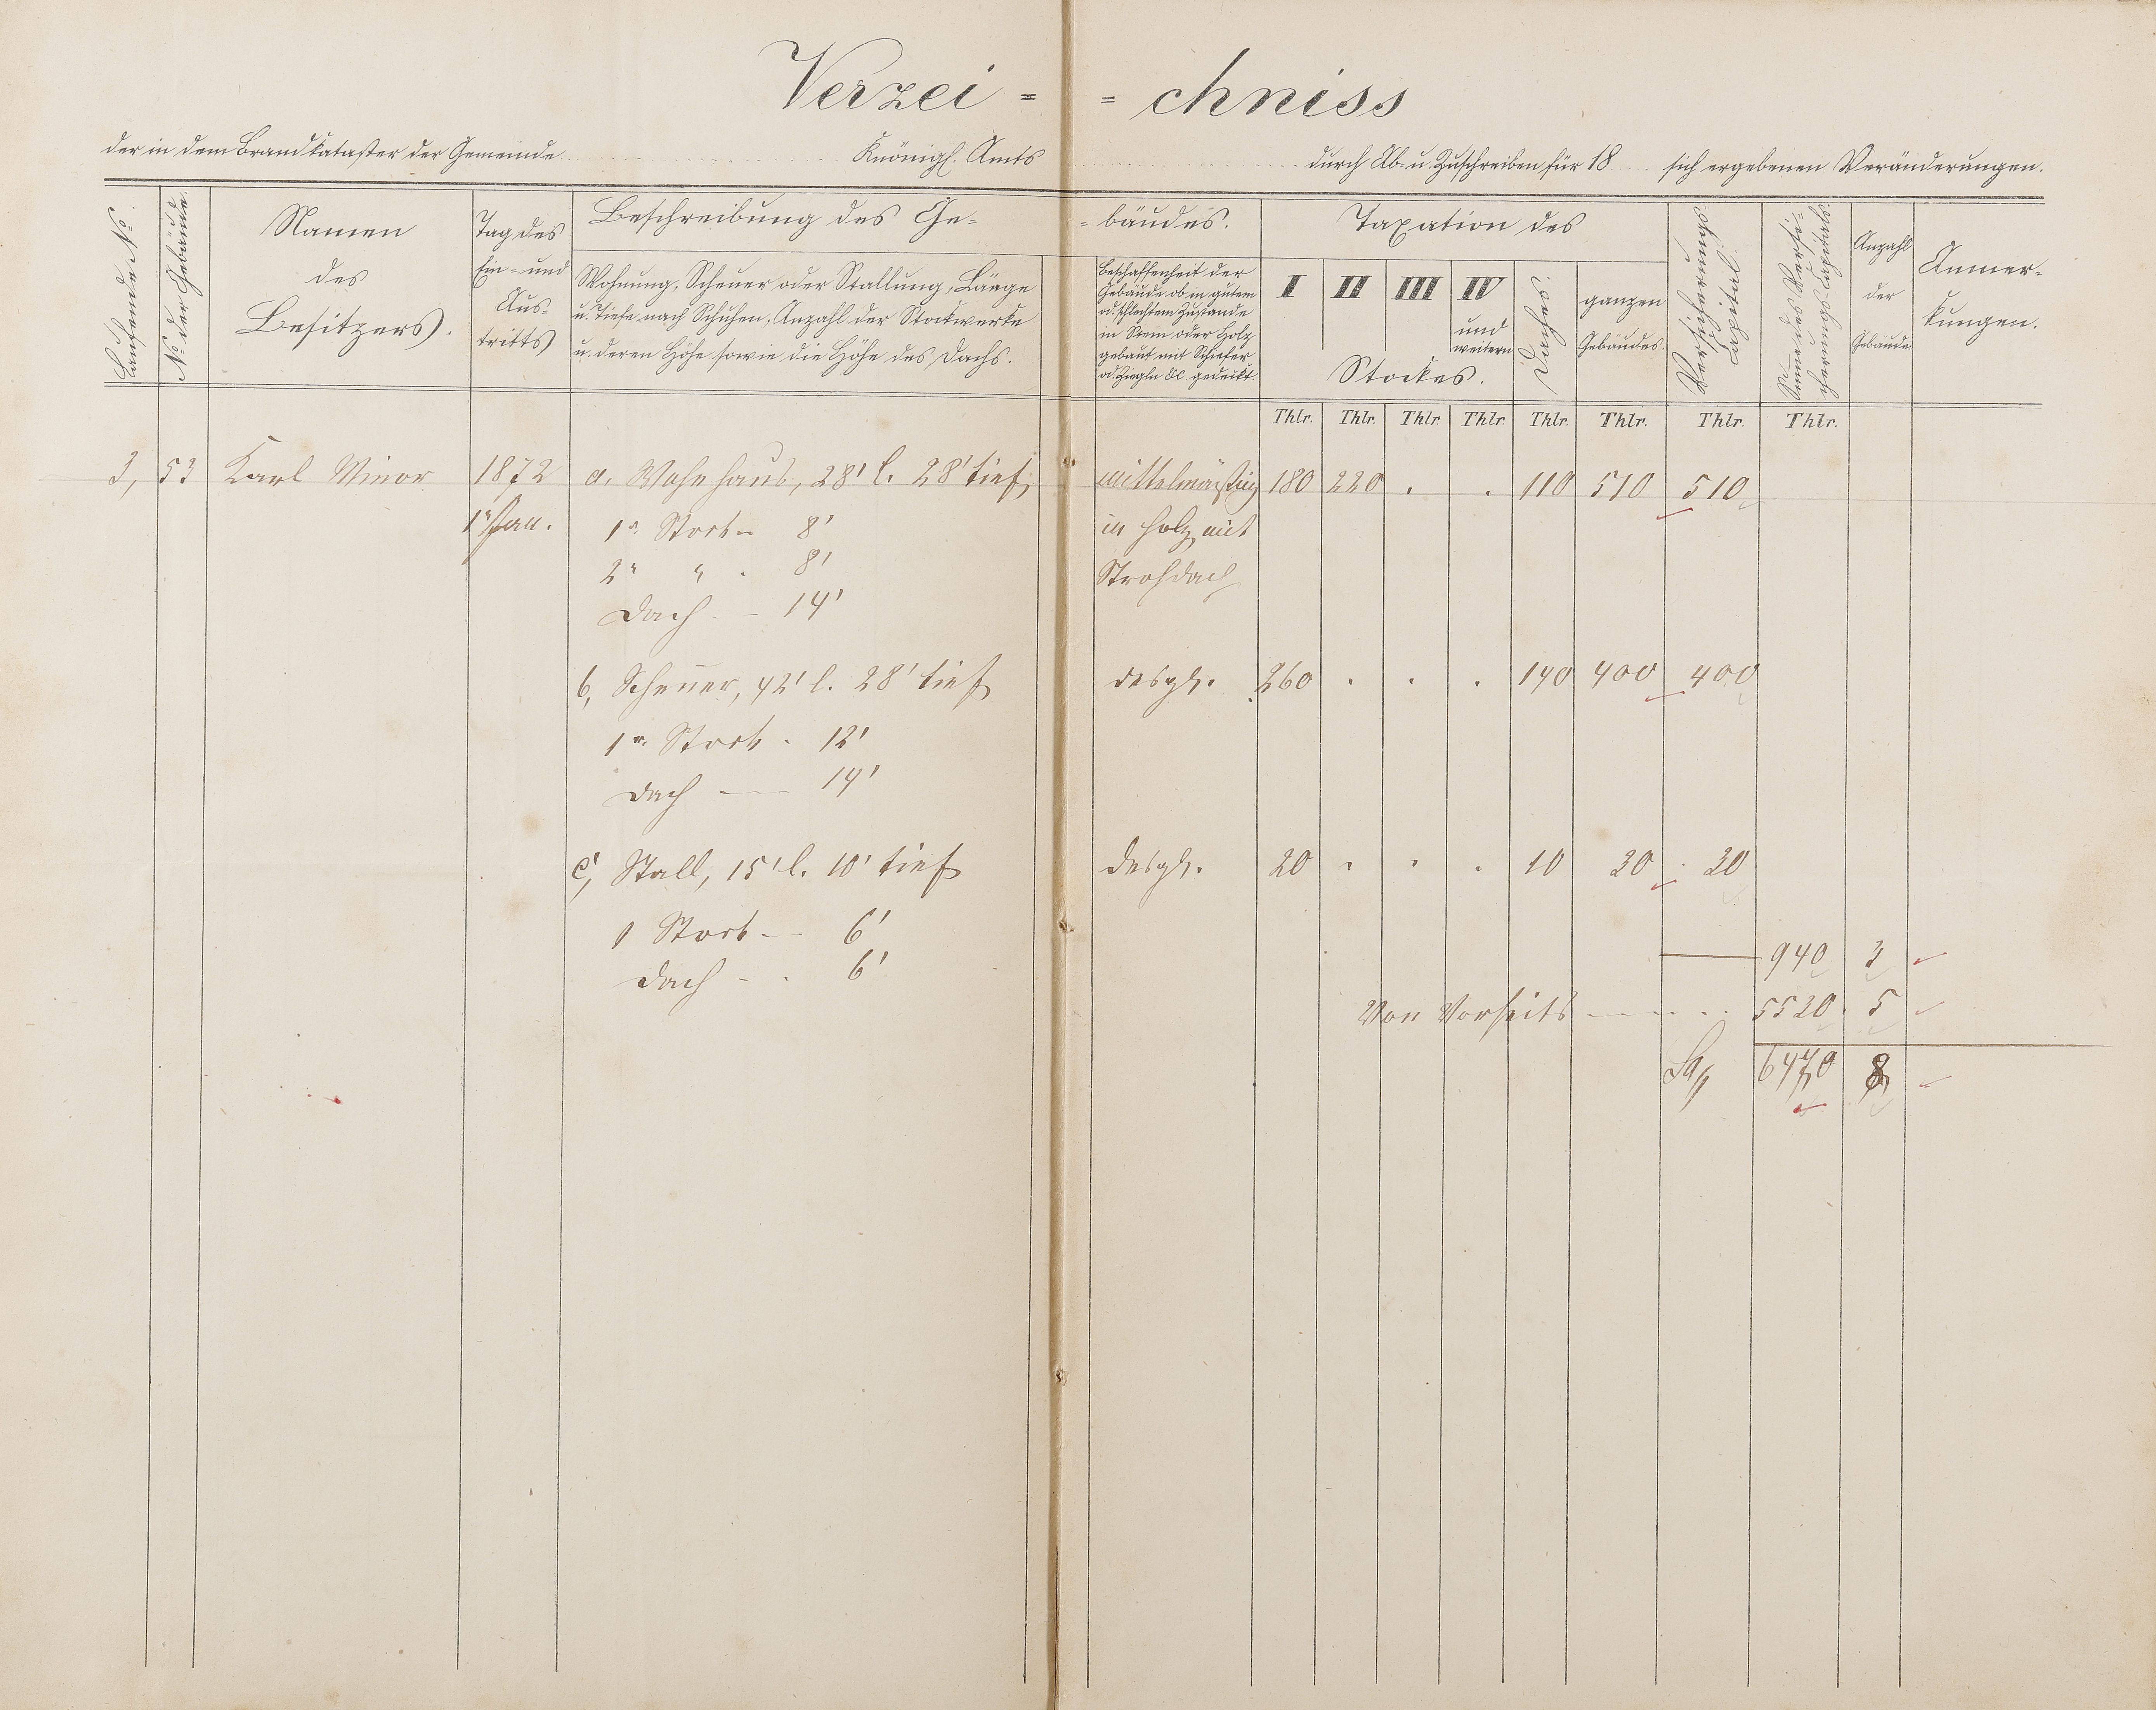 Verzei = = chniss
der in dem Brandkataster der Gemeinde Königl. Amts durch Ab- u. Zuschreiben für 18 sich ergebenen Veränderungen.
Laufende No.
No. der Gebäude.
Namen
des
Besitzers.
Tag des
Ein- und
Aus-
tritts
Beschreibung des Ge- = bäudes.
Wohnung, Scheuer oder Stallung, Länge
u. Tiefe nach Schuhen, Anzahl der Stockwerke
u. deren Höhe sowie die Höhe des Dachs.
Beschaffenheit der
Gebäude ob in gutem
od. schlechtem Zustande
in Stein oder Holz
gebaut mit Schiefer
od. Ziegln &c. gedeckt
Taxation des
I II III IV
und
weitern
Stockes.
Daches.
ganzen
Gebäudes.
Versicherungs-
Capital.
Summe des Versi-
cherungs-Capitals.
Anzahl
der
Gebäude
Anmer-
kungen.
Thlr. Thlr. Thlr. Thlr. Thlr. Thlr. Thlr. Thlr.
3, 53 Karl Minor 1872 a. Wohnhaus, 28' l. 28' tief mittelmäßig 180 220 . . 110 510 510
1r Jan. 1r. Stock - 8' in Holz mit
2r " - 8' Strohdach
Dach - - 14'
b, Scheuer, 42' l. 28' tief desgl. 260 . . . 140 400 400
1r. Stock - 12'
Dach - 14'
c, Stall, 15' l. 10' tief desgl. 20 . . . 10 30 30
1 Stock - 6'
Dach - - 6'
940 3
Von Vorseits - 5530 5
Sa. 6470 8